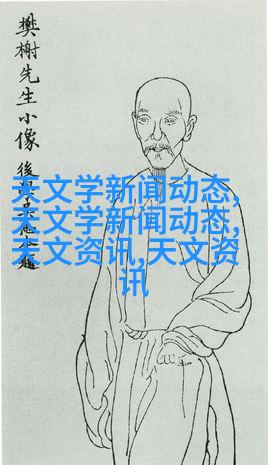 樊榭先生小像
後學
天文学新闻动态,
天文学新闻动态,
天文资讯,天文资
讯